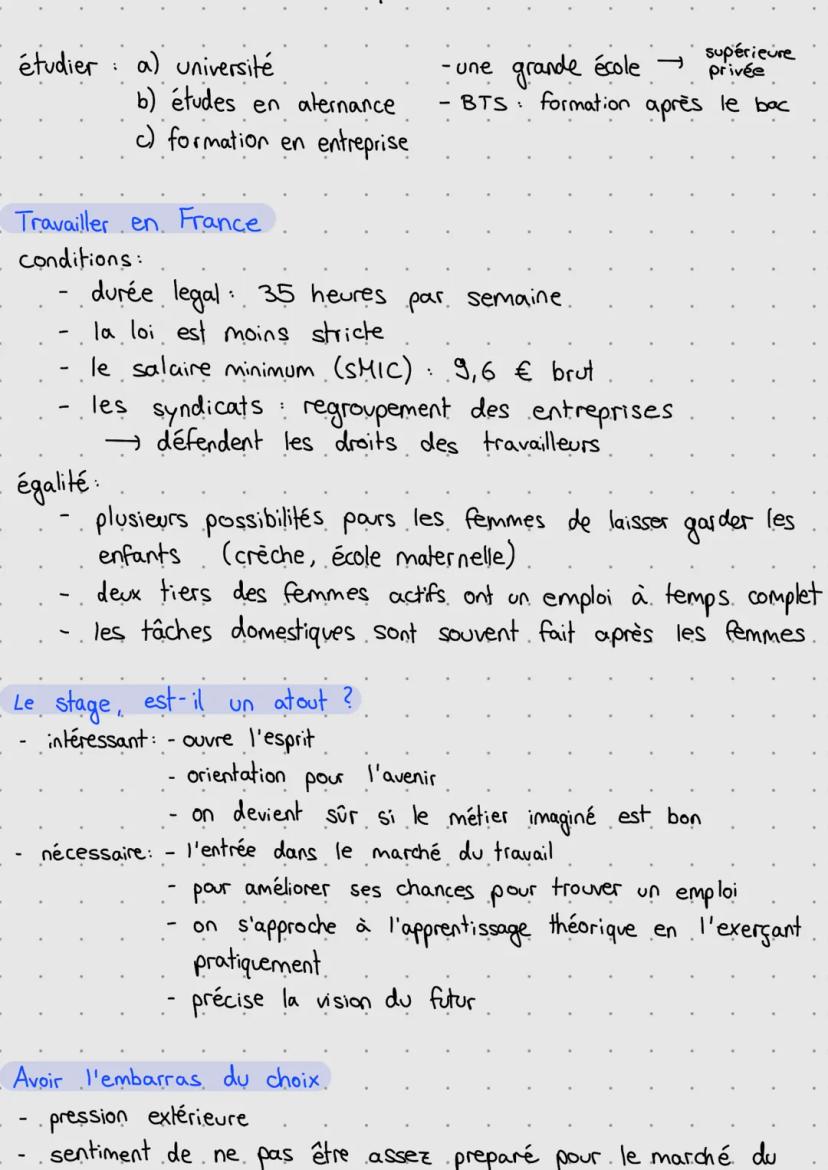 étudier : a) université - une grande école → supérieure privée
b) études en aternance - BTS : formation après le bac
c) formation en entreprise
Travailler en France
conditions:
- durée legal : 35 heures par semaine
- la loi est moins stricte
- le salaire minimum (SMIC) : 9,6 € brut
- les syndicats : regroupement des entreprises
→ défendent les droits des travailleurs
égalité:
- plusieurs possibilités pours les femmes de laisser garder les
enfants (crèche, école maternelle)
- deux tiers des femmes actifs ont un emploi à temps complet
- les tâches domestiques sont souvent fait après les femmes
Le stage, est-il un atout ?
- intéressant: - ouvre l'esprit
- orientation pour l'avenir
- on devient sûr si le métier imaginé est bon
- nécessaire: - l'entrée dans le marché du travail
- pour améliorer ses chances pour trouver un emploi
- on s'approche à l'apprentissage théorique en l'exerçant
pratiquement
- précise la vision du futur
Avoir l'embarras du choix
- pression extérieure
- sentiment de ne pas être assez preparé pour le marché du